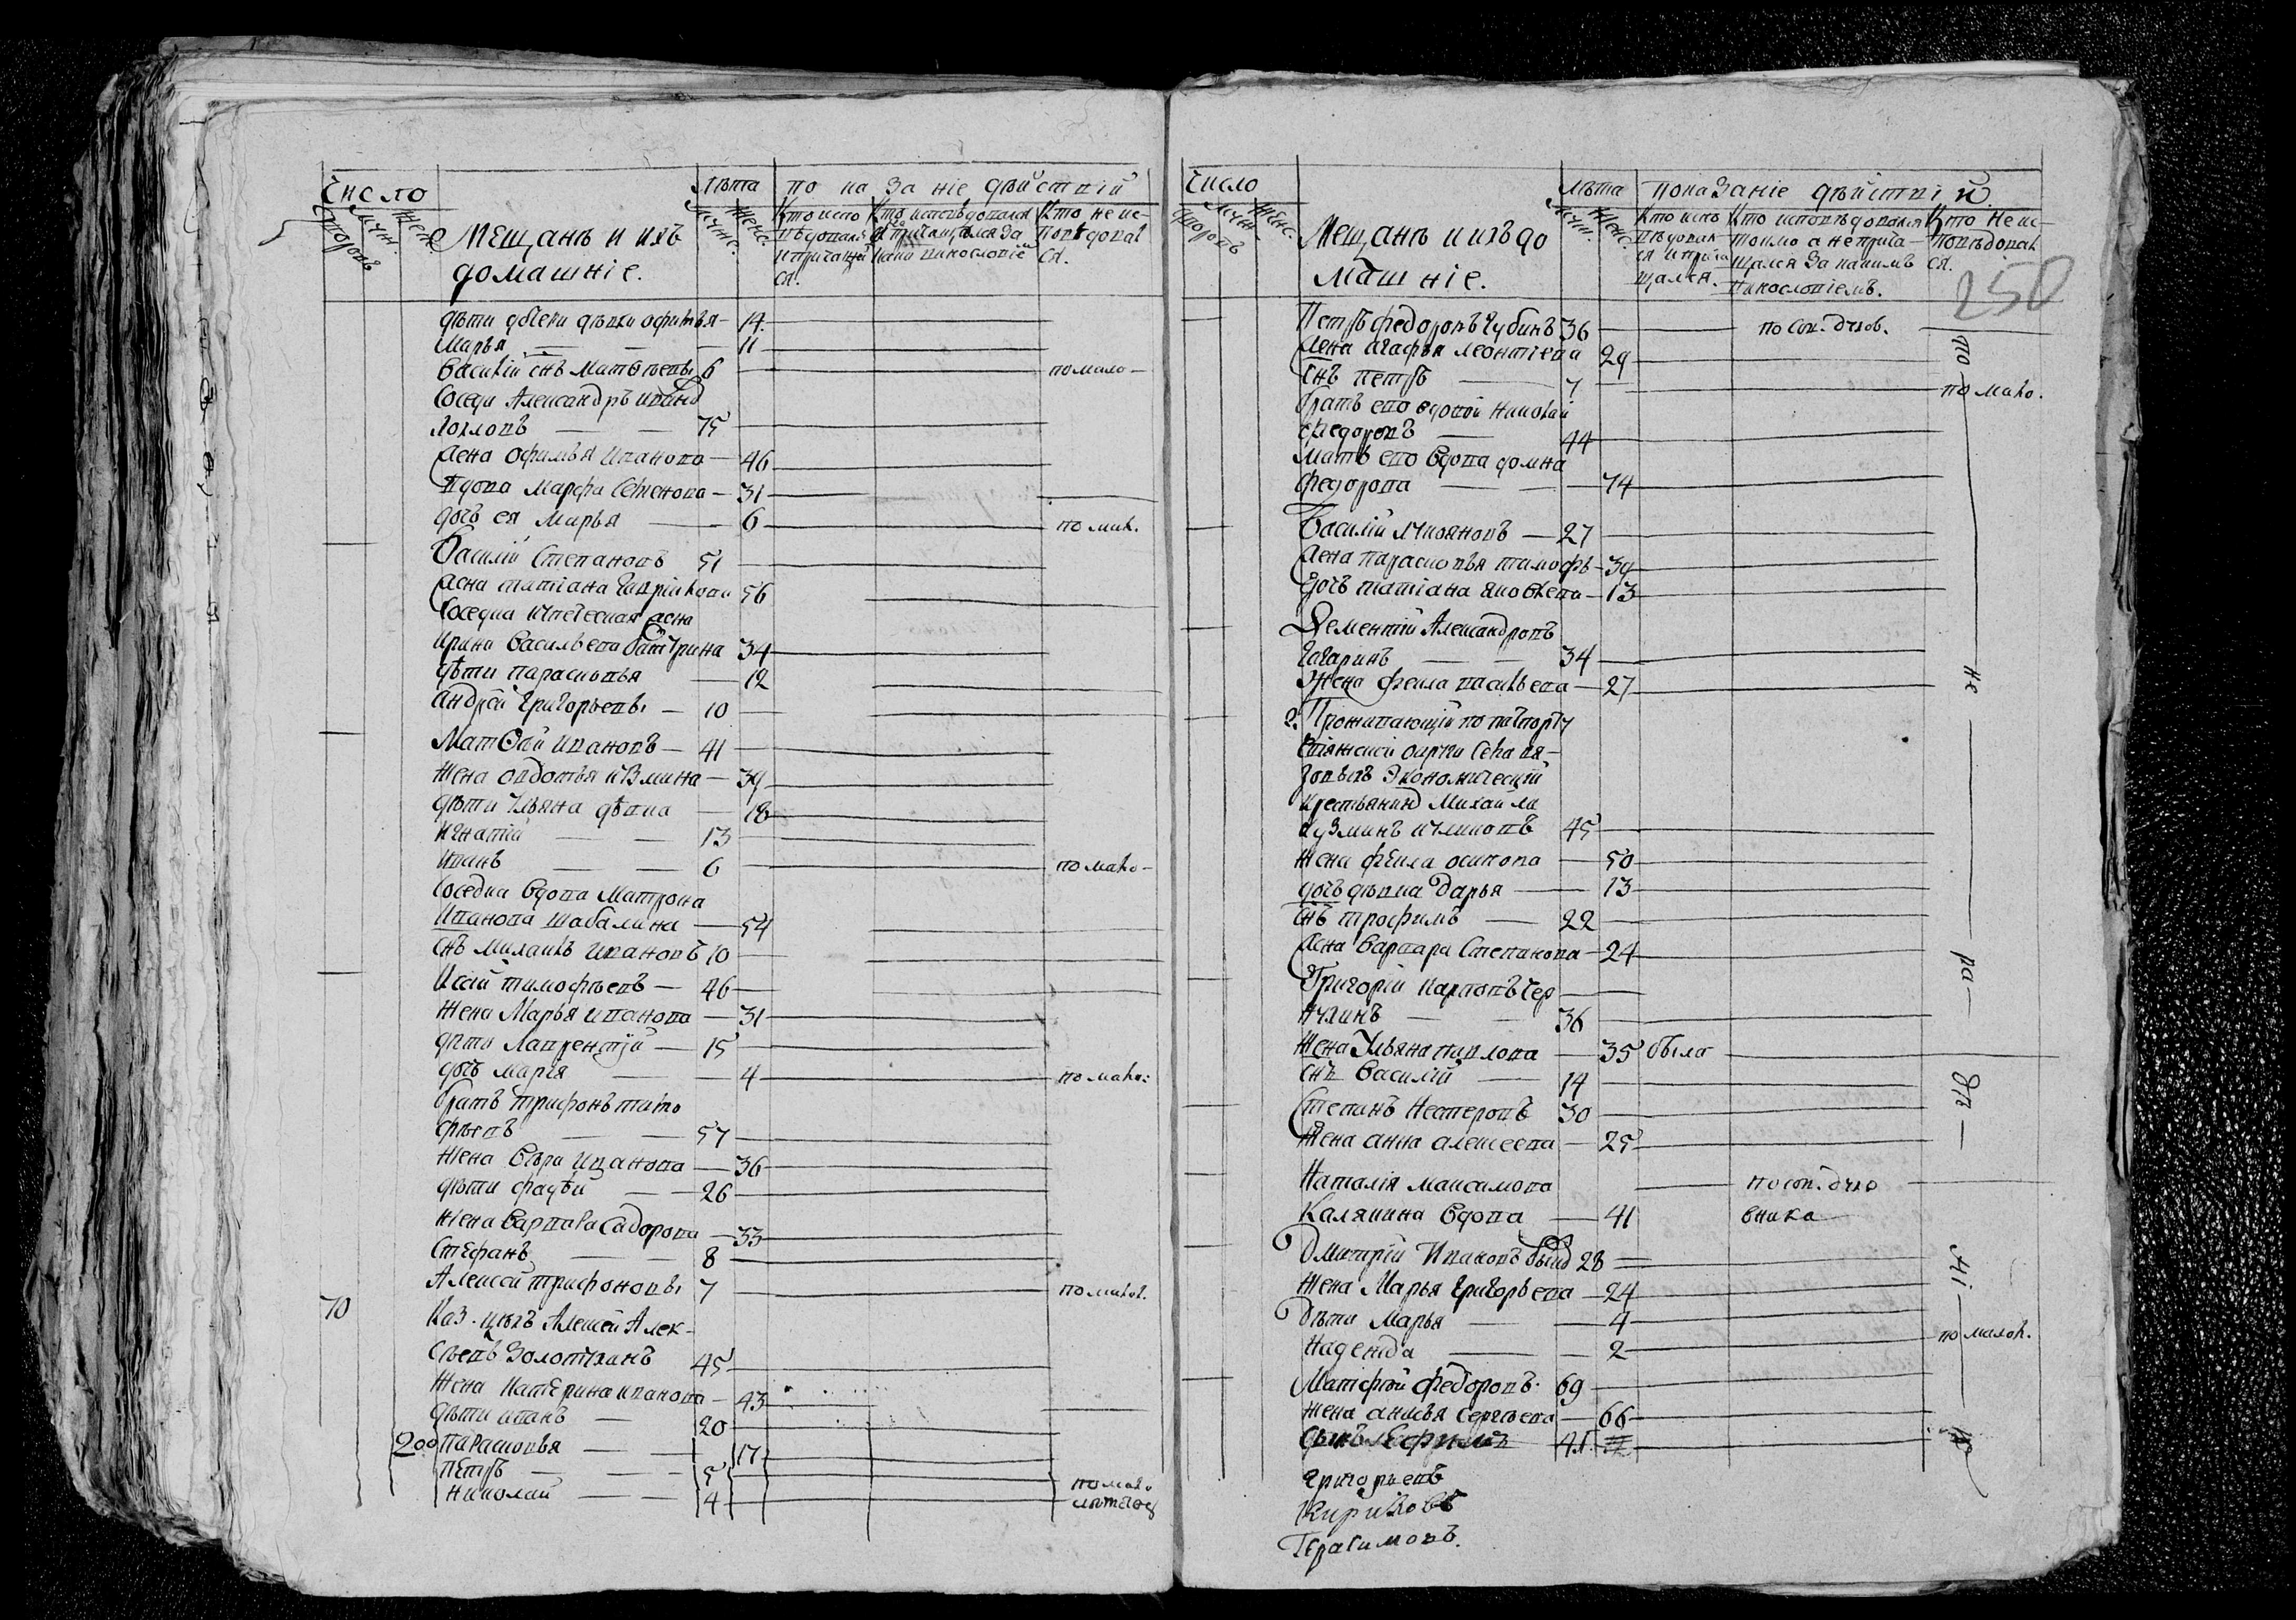 Число
Дворовъ
Мужс.
Женс.
Мещанъ и ихъ
домашніе.
Лѣта
Мужс.
Женс.
показаніе дѣйствій
Кто испо
вѣдовалъ
и причащал
ся.
Кто исповѣдовался
а не причащался за
какимъ винословіем
Кто не ис-
повѣдовал
ся.
дѣти дѣвки офимья — 14
Марья — — — 11
Василій снъ Матвѣевы 6 помало-
Соседи Александръ Иванов
Хохловъ — — 75
Жена Офимья Иванова — 46
Вдова Марфа Семенова — 31
дочь ея Марья — 6 по мал.
Василій Степановъ 51
Жена татіана Гаврилова 56
Соседка купеческая жена
Ирина Васильева 34
дѣти парасковья — 12
андрей Григорьевы — 10
Матвѣй Ивановъ — 41
Жена овдотья Кузмина — 39
дѣти Ульяна дѣвка — 18
Игнатій — — 13
Иванъ — — 6 по мало-
Соседка вдова Матрона
Иванова Шабалина — 54
снъ Михаилъ Ивановъ 10
Исай тимофѣевъ — 46
Жена Марья Иванова — 31
дѣти Лаврентій — 15
дочь марія — 4 по мало:
братъ трифонъ тимо
фѣевъ — — 57
Жена Вѣра Иванова — 36
дѣти фадѣй — — 26
Жена Варвара Сидорова — 33
Стефанъ — 8
Алексей трифоновы 7 по малол.
70 Каз. цехъ Алексей Алек-
сѣевъ Золотухинъ 45
Жена Катерина Иванова — 43
дѣти иванъ — 20
200 Парасковья — — 17
Петръ — — — 5
Николай — — 4 по мало
лѣтству
Число
Дворовъ
Мужс.
Женс.
Мещанъ и ихъ до
машніе.
Лѣта
Мужс.
Женс.
показаніе дѣйствій
Кто испо
вѣдовал
ся и прича
щался.
Кто исповѣдовался
токмо а неприча-
щался за какимъ
винословіемъ.
Кто не ис-
повѣдовал
ся.
250
Петръ Федоровъ Губинъ 36 по сов. духов.
Жена Агафья Леонтіева 29
снъ петръ — 7 по мало.
братъ ево вдовой Николай
Федоровъ — 44
Мать ево вдова домна
Федорова — — 74
Василій Лукояновъ — 27
Жена парасковья тимофѣ — 39
дочь татіана Яковлева — 13
Дементій Александровъ
Гагаринъ — — 34
Жена фекла васильева — 27
Проживающій по пашпорту
экономическій
крестьянинъ Михайла
Кузминъ Куликовъ 45
жена фекла осипова — 50
дочь дѣвка Дарья — 13
снъ трофимъ — 22
Жена Варвара Степанова — 24
Григорій Карповъ Чер
нухинъ — — 36
Жена Ульяна павлова — 35 была
снъ Василій — 14
Степанъ Нестеровъ 30
Жена анна алексеева — 25
Наталія максимова по сов. духо
Калякина вдова — 41 вника
Дмитрій Ивановъ Быковъ 28
Жена Марья Григорьева — 24
Дѣти Марья — — 4
Надежда — — 2 по малол.
Матфѣй федоровъ 69
Жена анисья Сергѣева — 66
Ефимъ 41
по
не
ра-
дѣ-
ні-
ю
Григорьевъ
Кириковъ
Герасимовъ.